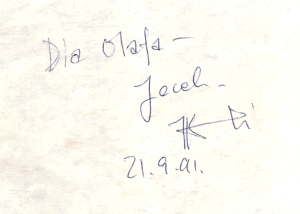 Dla Olafa –
Jacek.
21.9.91.